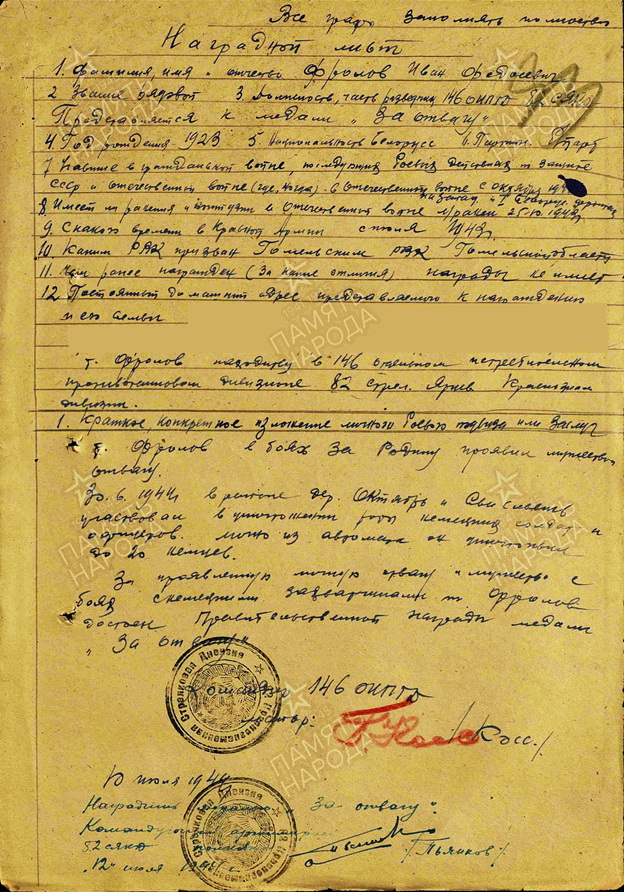 Все графы заполнять полностью
Наградной лист
1. Фамилия, имя и отчество Фролов Иван Федосеевич
2 Звание рядовой 3. Должность, часть разведчик 146 ОИПТД 82 СЯКД
Представляется к медали "За отвагу"
4 Год рождения 1923 5. Национальность Белорус 6. Партийн.
7 Участие в гражданской войне, последующих боевых действиях по защите
СССР и отечественной войне (где, когда). в Отечественной войне с октября
на Запад. и I Белорус. фронтах
8. Имеет ли ранения и контузии в Отечественной войне ранен 25.10.1943г
9. С какого времени в Красной Армии с июля
10. Каким РВК призван Гомельским РВК Гомельской области
11. Чем ранее награжден (За какие отличия) награды не имеет
12. Постоянный домашний адрес представляемого к награждению
и его семьи
т. Фролов находится в 146 отдельном истребительном
противотанковом дивизионе 82 стрел. Ярцев. Краснознам
дивизии.
1. Краткое, конкретное изложение личного боевого подвига или заслуг
т. Фролов в боях за Родину проявил мужество
отвагу.
30.6.1944г в районе дер. Октябрь и
участвовал в уничтожении роты немецких солдат и
офицеров. лично из автомата он уничтожил
до 20 немцев.
За проявленную личную отвагу и мужество в
боях с немецкими захватчиками т. Фролов
достоин Правительственной награды медали
"За отвагу"
Командир 146 ОИПТД
майор: /Косс./
Стрелковая Дивизия
82 Краснознаменная
10 июля 1944г
Награжден медалью "За отвагу".
Командующий артиллерией
82 сякд
"12" июля 1944г.
Стрелковая Дивизия
82 Краснознаменная
ПАМЯТЬ НАРОДА